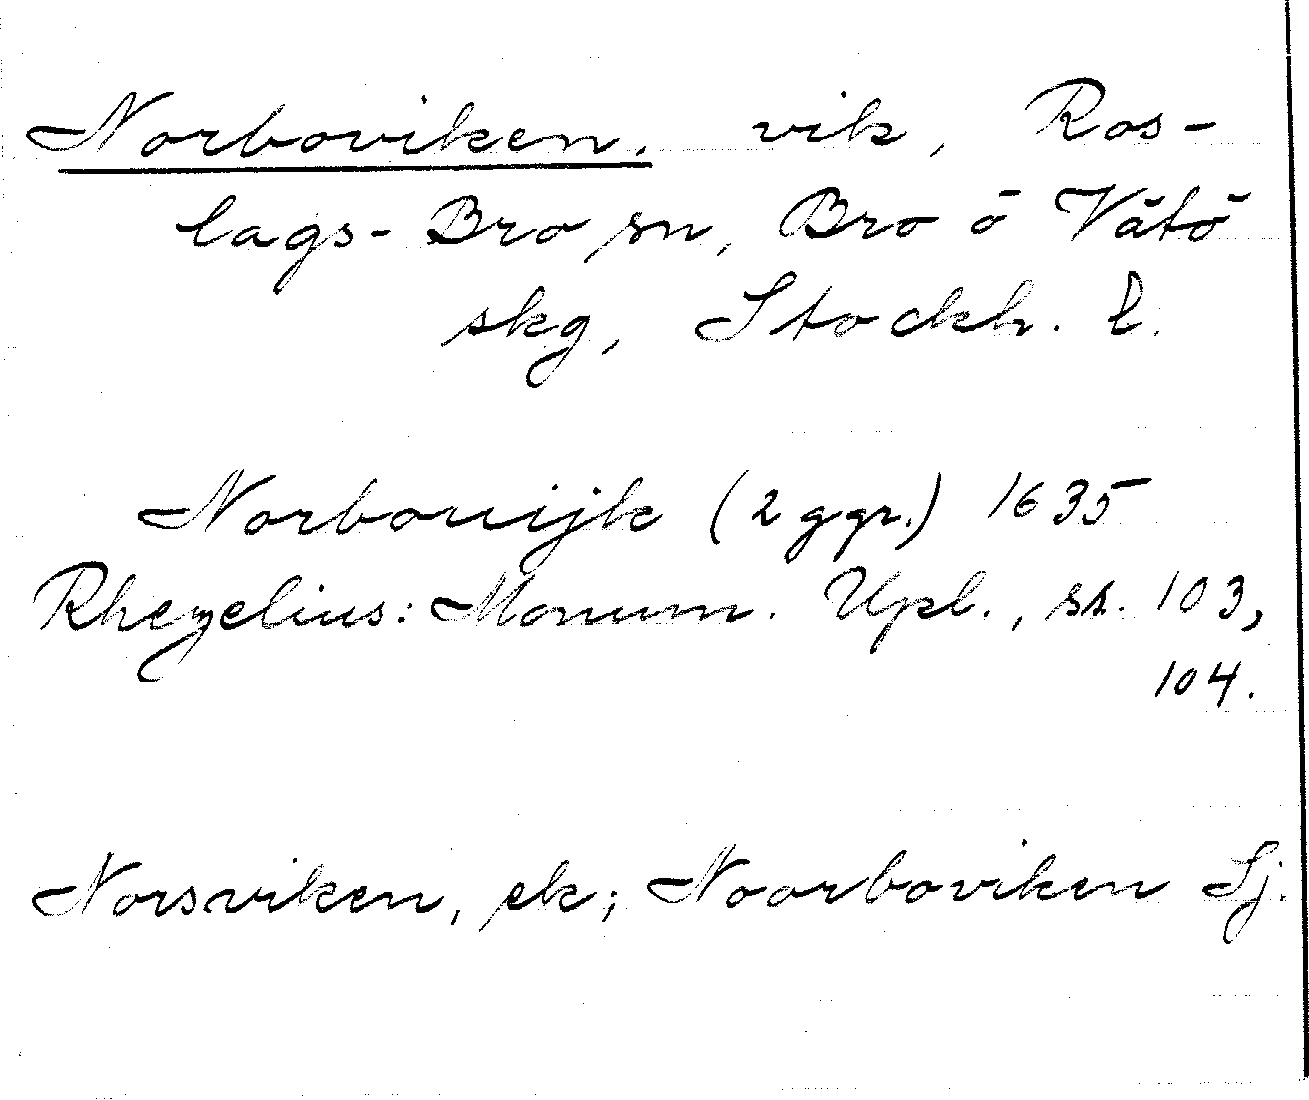 Norboviken, vik, Ros-
lags-Bro sn, Bro o Vätö
skg, Stockh. l.
Norbouijk (2 ggr.) 1635
Rhezelius: Monum. Upl., ss. 103,
104.
Norsviken, ek; Noorboviken Sj.